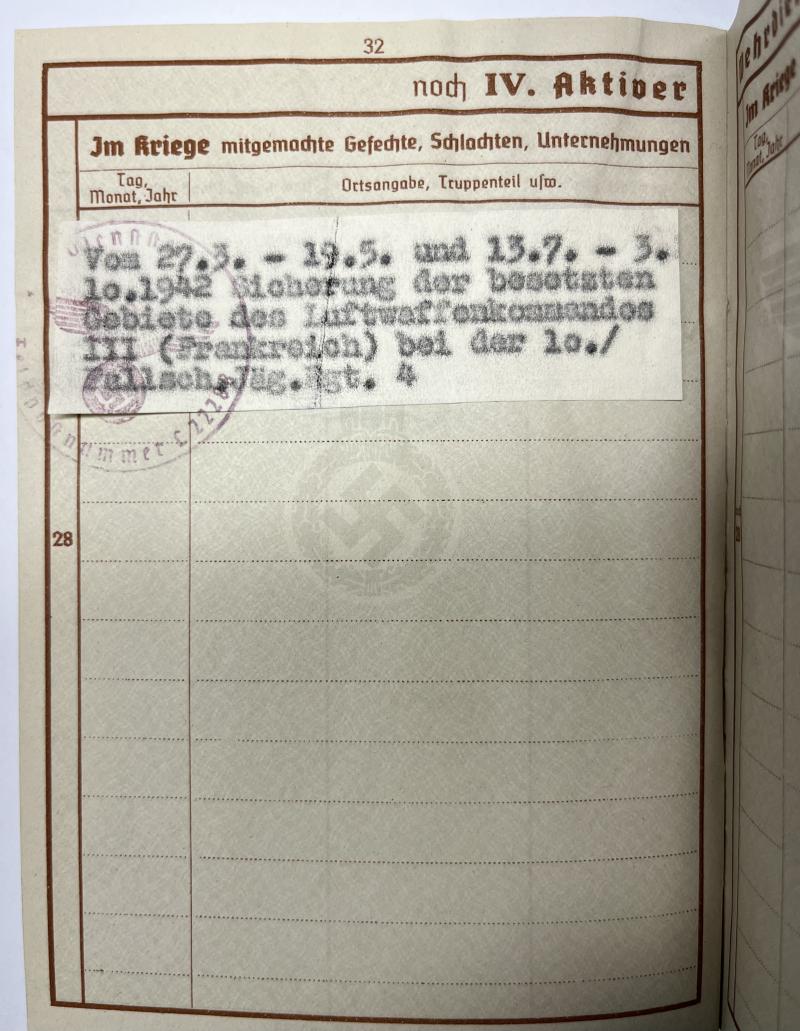 32
noch IV. Aktiver
Im Kriege mitgemachte Gefechte, Schlachten, Unternehmungen
Tag, Monat, Jahr
Ortsangabe, Truppenteil usw.
Vom 27.3. - 19.5. und 13.7. - 3.
10.1942 Sicherung der besetzten
Gebiete des Luftwaffenkommandos
III (Frankreich) bei der 10./
Fallsch.Jäg.Rgt. 4
28
Im Kriege
Tag,
Monat, Jahr